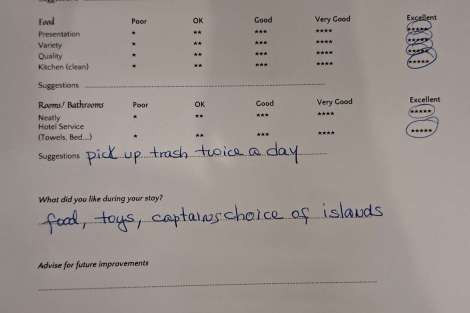 Food Poor OK Good Very Good Excellent
Presentation * ** *** **** *****
Variety * ** *** **** *****
Quality * ** *** **** *****
Kitchen (clean) * ** *** **** *****
Suggestions
Rooms/ Bathrooms Poor OK Good Very Good Excellent
Neatly * ** *** **** *****
Hotel Service
(Towels, Bed...) * ** *** **** *****
Suggestions pick up trash twice a day
What did you like during your stay?
food, toys, captains choice of islands
Advise for future improvements